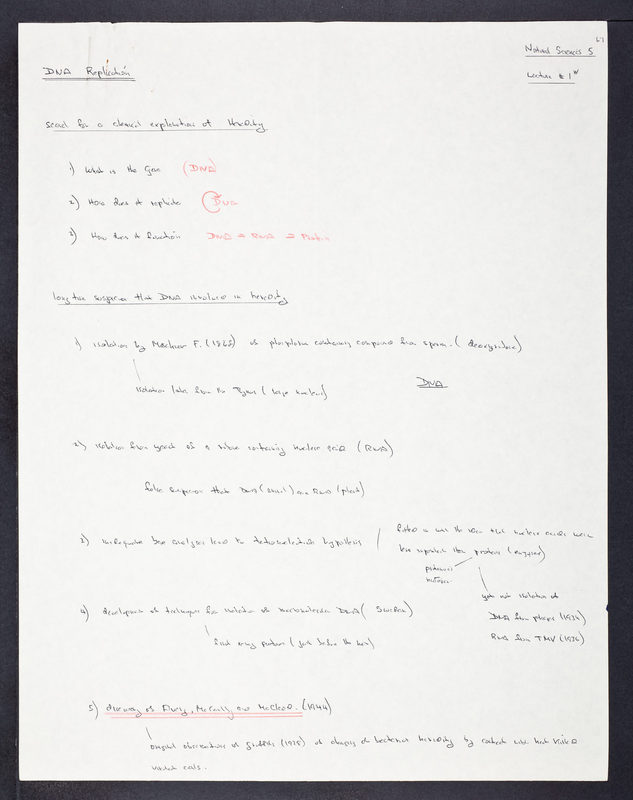 Natural Sciences 5
DNA Replication
Lecture # 1
Search for a chemical explanation of Heredity
1) What is the Gene (DNA)
2) How does it replicate DNA
3) How does it function DNA → RNA → Protein
long time suspicion that DNA involved in heredity
1) isolation by Miescher F. (1868) of phosphorus containing compound from sperm. (deoxyribose)
isolation later from the Thymus (large nucleus) DNA
2) isolation from yeast of a ribose containing nucleic acid (RNA)
false suspicion that DNA (animal) and RNA (plant)
3) inadequate base analyses lead to tetranucleotide hypothesis
fitted in with the idea that nucleic acids were
less important than proteins (enzymes)
yet not isolation of
4) development of techniques for isolation of DNA (
DNA from phage (1934)
RNA from TMV (1936)
first away protein (just before the war)
5) discovery of Avery, McCarty and McCleod. (1944)
original observations of Griffith (1925) of change of bacterial heredity by contact with heat killed
cells.